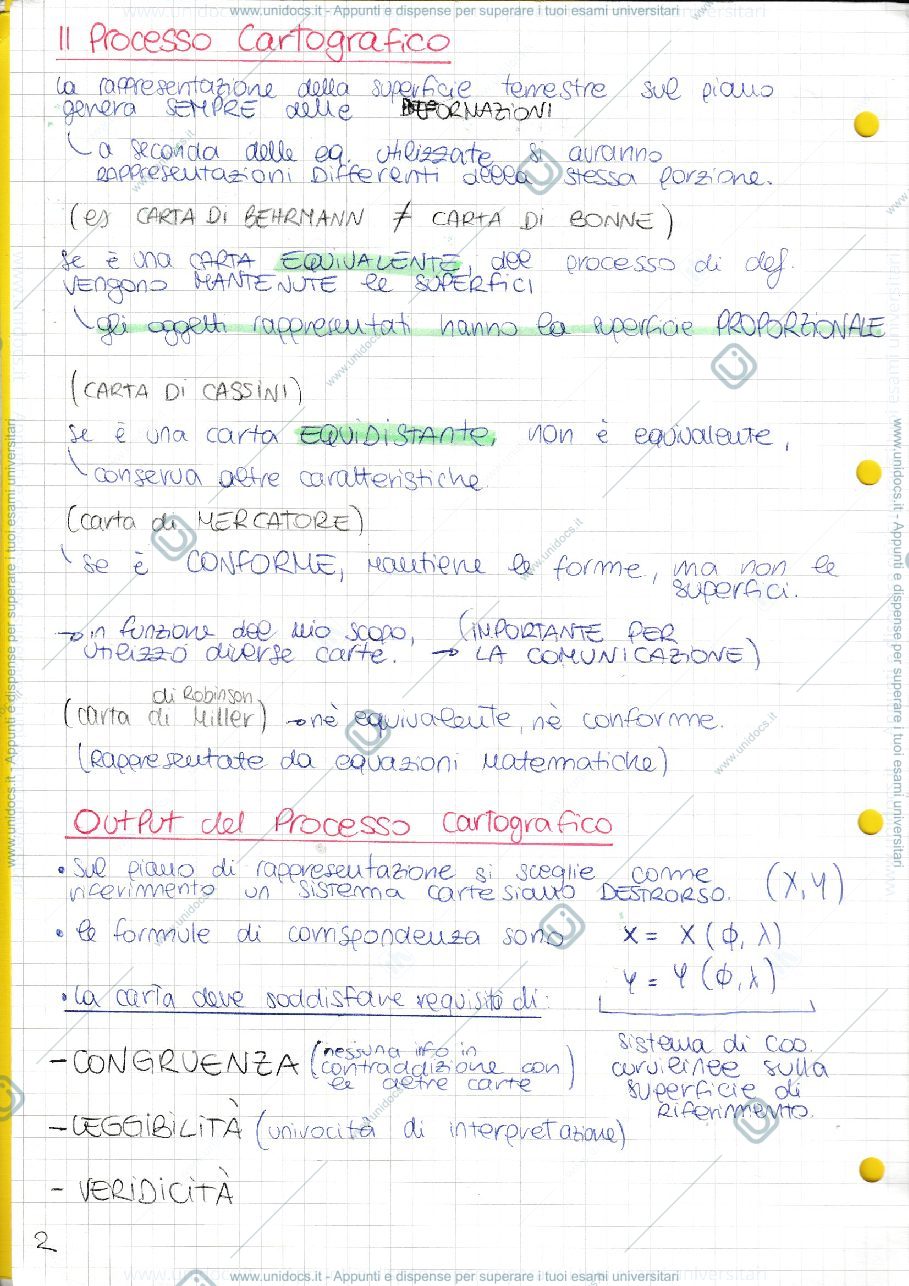 www.unidocs.it - Appunti e dispense per superare i tuoi esami universitari
Il Processo Cartografico
la rappresentazione della superficie terrestre sul piano
genera SEMPRE delle DEFORMAZIONI
a seconda delle eq. utilizzate si avranno
RAPPresentAZIONI Differenti della stessa porzione.
(es CARTA Di BEHRMANN ≠ CARTA DI BONNE)
se è una CARTA EQUIVALENTE, del processo di def.
VENgono MANTENUTE le SUPERFICI
gli oggetti rappresentati hanno la superficie PROPORZIONALE
(CARTA DI CASSINI)
se è una carta EQUIDISTANTE, non è equivalente,
conserva altre caratteristiche.
(carta di MERCATORE)
se è CONFORME, mantiene le forme, ma non le
superfici.
→ in funzione del mio scopo, (IMPORTANTE PER
utilizzo diverse carte. → LA COMUNICAZIONE)
di Robinson
(carta di Miller) → nè equivalente, nè conforme.
(Rappresentate da equazioni Matematiche)
Output del Processo Cartografico
• Sul piano di rappresentazione si sceglie come
riferimento un sistema cartesiano DESTRORSO. (X,Y)
• le formule di corrispondenza sono X = X (ϕ, λ)
Y = Y (ϕ, λ)
• La carta deve soddisfare requisiti di:
sistema di coo.
curvilinee sulla
superficie di
Riferimento.
- CONGRUENZA (nessuna info in
contraddizione con
le altre carte)
- LEGGIBILITÀ (univocità di interpretazione)
- VERIDICITÀ
2
www.unidocs.it - Appunti e dispense per superare i tuoi esami universitari
www.unidocs.it - Appunti e dispense per superare i tuoi esami universitari
www.unidocs.it - Appunti e dispense per superare i tuoi esami universitari